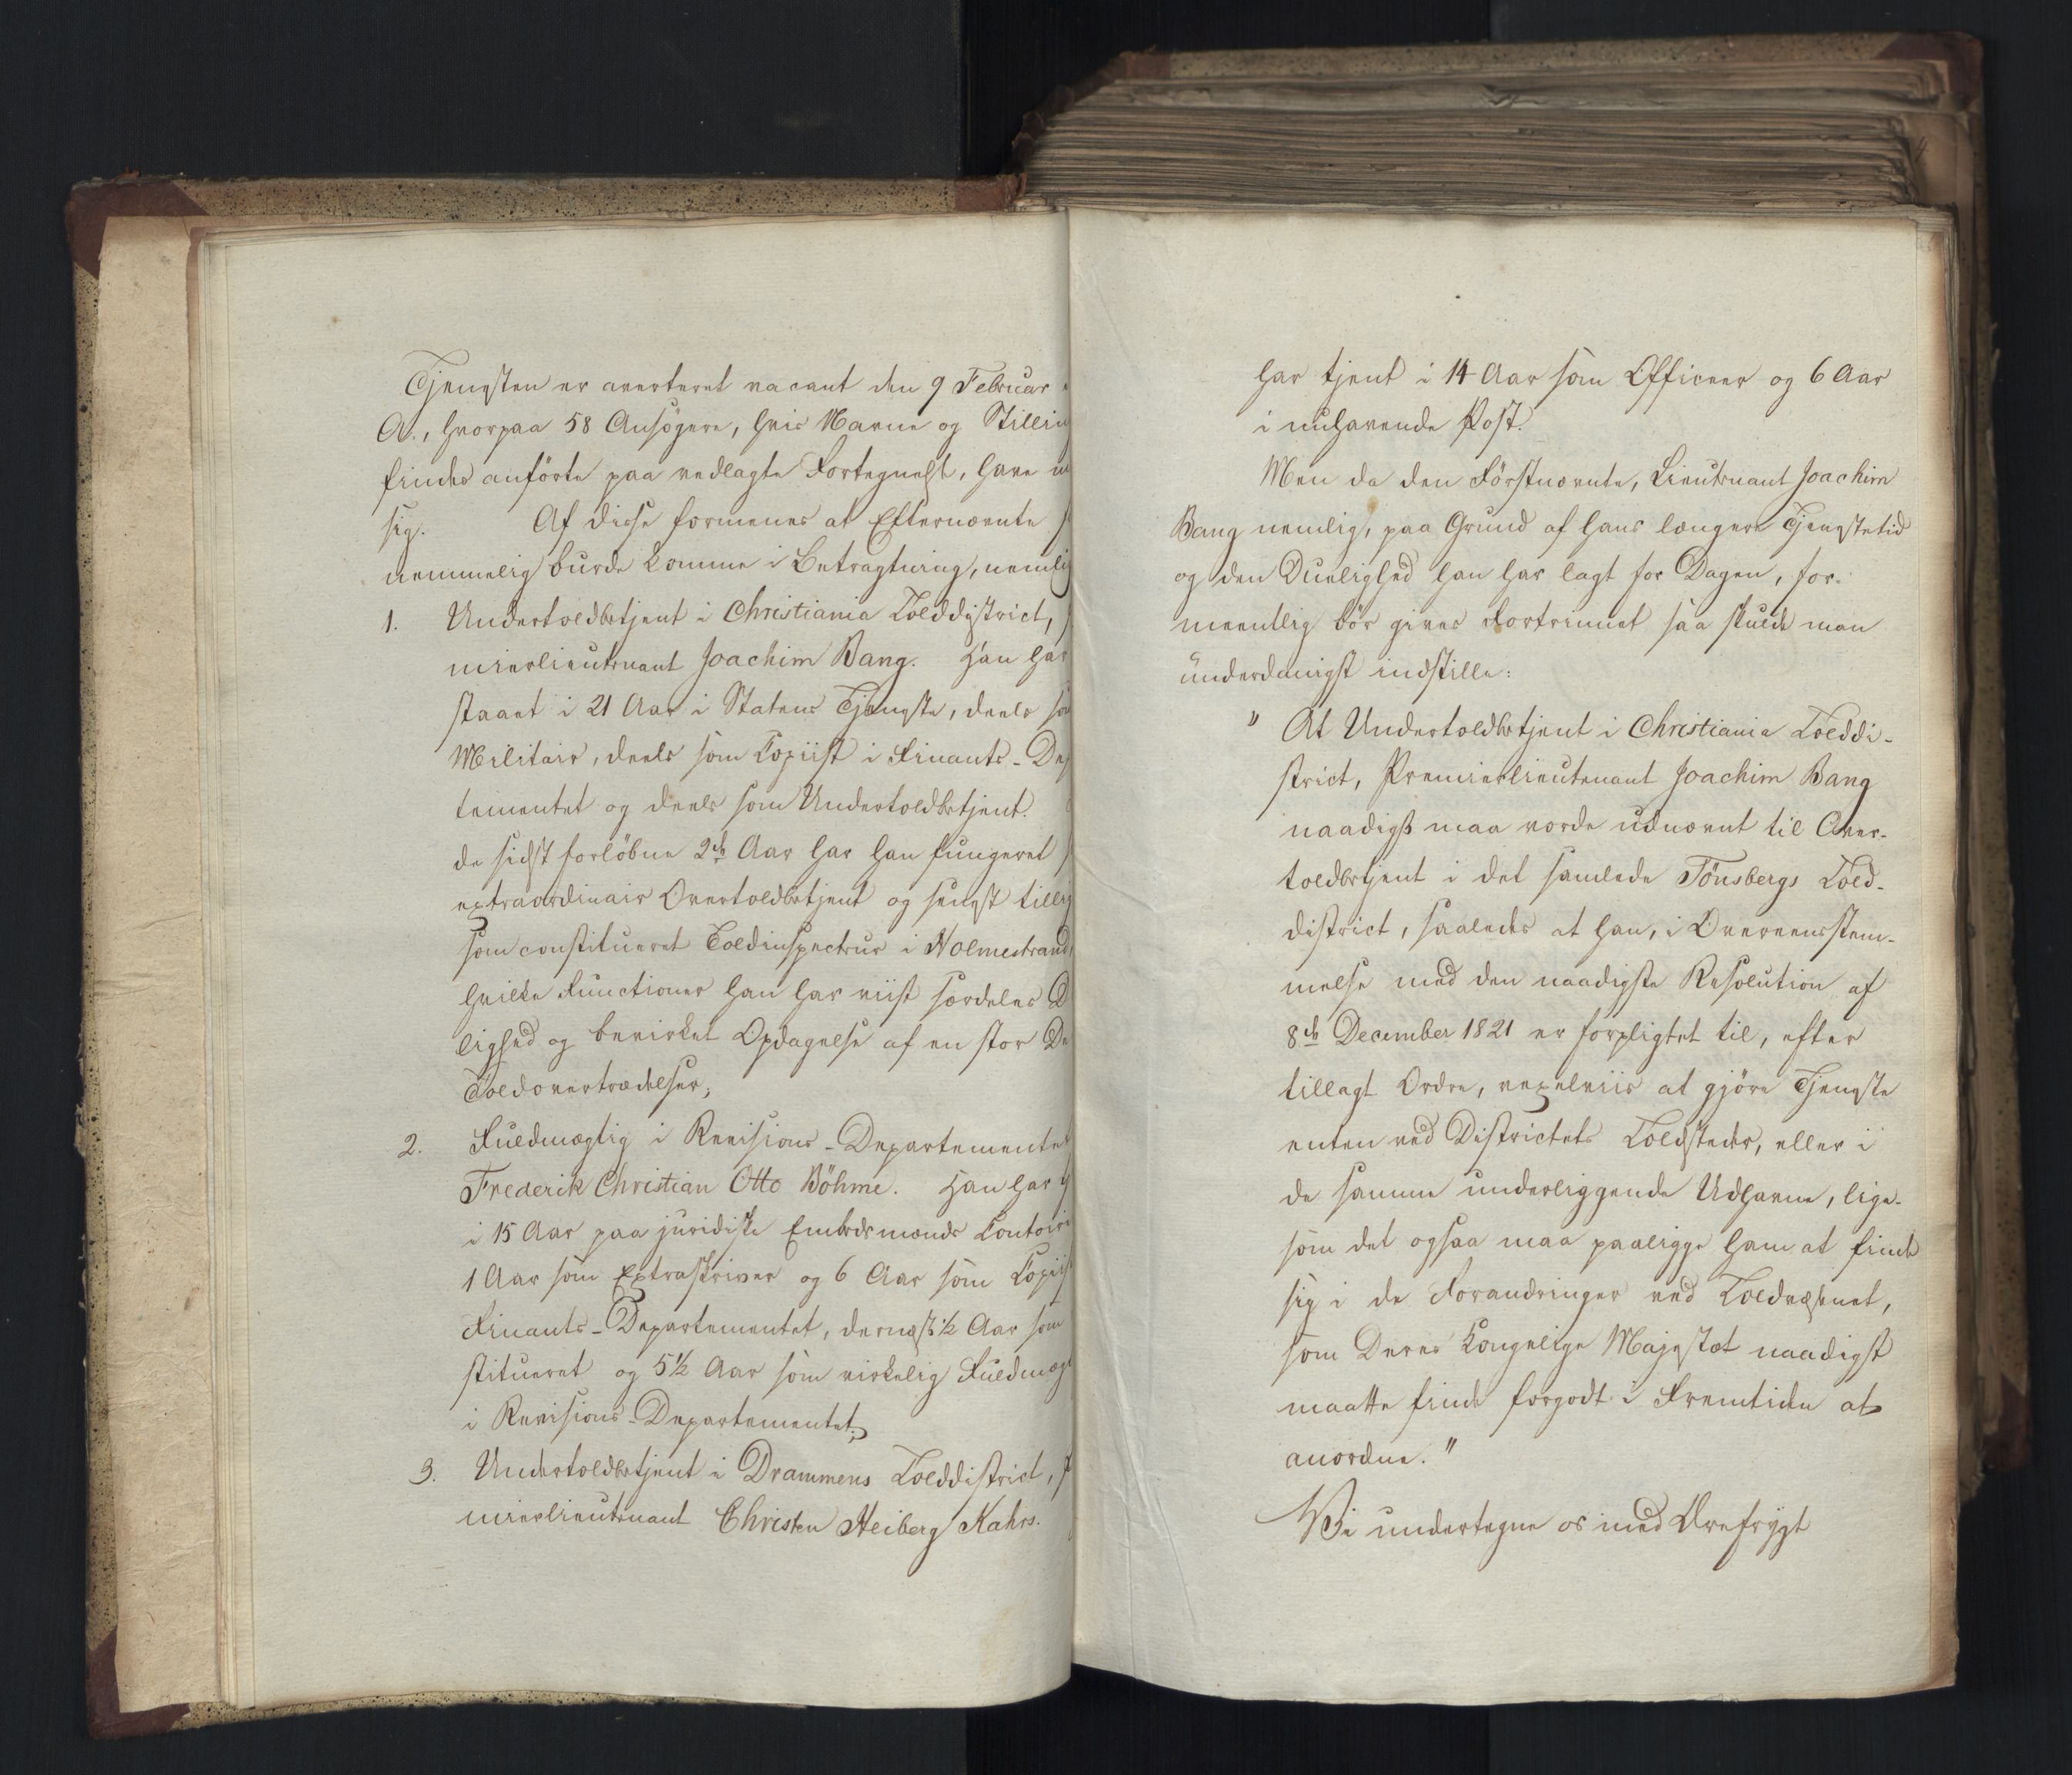 Tjenesten er averteret vacant den 9 Februar
A., hvorpaa 58 Ansögere, hvis Navne og Stillin
findes anförte paa vedlagte Fortegnelse, have
sig. Af disse formenes at Efternævnte
nemmelig burde komme i Betragtning, nemlig
1. Undertoldbetjent i Christiania Tolddistrict,
mierlieutenant Joachim Bang. Han har
staaet i 21 Aar i Statens Tjeneste, deels som
Militair, deels som Copiist i Finants-Dep
tementet og deels som Undertoldbetjent.
de sidst forløbne 2de Aar har han fungeret
extraordinair Overtoldbetjent og senest tillig
som constitueret Toldinspecteur i Holmestrand
hvilke Functioner han har viist særdeles D
lighed og bevirket Opdagelse af en stor De
Toldovertrædelser;
2. Fuldmægtig i Revisions-Departementet
Frederik Christian Otto Böhme. Han har
i 15 Aar paa juridiske Embedsmænds Contoir
1 Aar som Extraskriver og 6 Aar som Copiist
Finants-Departementet, dernæst ½ Aar som
stitueret og 5½ Aar som virkelig Fuldmægt
i Revisions-Departementet;
3. Undertoldbetjent i Drammens Tolddistrict,
mierlieutenant Christen Heiberg Kahrs.
har tjent i 14 Aar som Officeer og 6 Aar
i nuhavende Post.
Men da den Förstnævnte, Lieutenant Joachim
Bang nemlig, paa Grund af hans længere Tjenestetid
og den Duelighed han har lagt for Dagen, for-
meentlig bör gives Fortrinnet saa skulde man
underdanigst indstille:
" At Undertoldbetjent i Christiania Tolddi-
strict, Premierlieutenant Joachim Bang
naadigst maa vorde udnævnt til Over-
toldbetjent i det samlede Tönsbergs Told-
district, saaledes at han, i Overeensstem-
melse med den naadigste Resolution af
8de December 1821 er forpligtet til, efter
tillagt Ordre, vexelviis at gjöre Tjeneste
enten ved Districtets Toldsteder, eller i
de samme underliggende Udhavne, lige-
som det ogsaa maa paaligge ham at finde
sig i de Forandringer ved Toldvæsenet,
som Deres Kongelige Majestæt naadigst
maatte finde forgodt i Fremtiden at
anordne."
Vi undertegne os med Ærefrygt